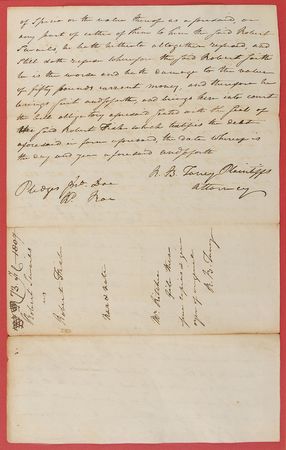 of Specie or the value thereof as aforesaid, or
any part of either of them to him the said Robert
Samuels he hath hitherto altogether refused, and
still doth refuse wherefore the said Robert saith
he is the worse and hath damage to the value
of fifty pounds current money, and therefore he
brings suit and so forth, and brings here into court
the bill obligatory aforesaid sealed with the seal of
the said Robert Fish which testifies the debt
aforesaid in form aforesaid, the date whereof is
the day and year aforesaid and so forth
R. B. Taney Plaintiffs
Attorney
Pledges Jno. Doe
Rd. Roe
Robert Samuels
vs
Robert Fish
Narr &
Mr Ritchie
file this
R. B. Taney